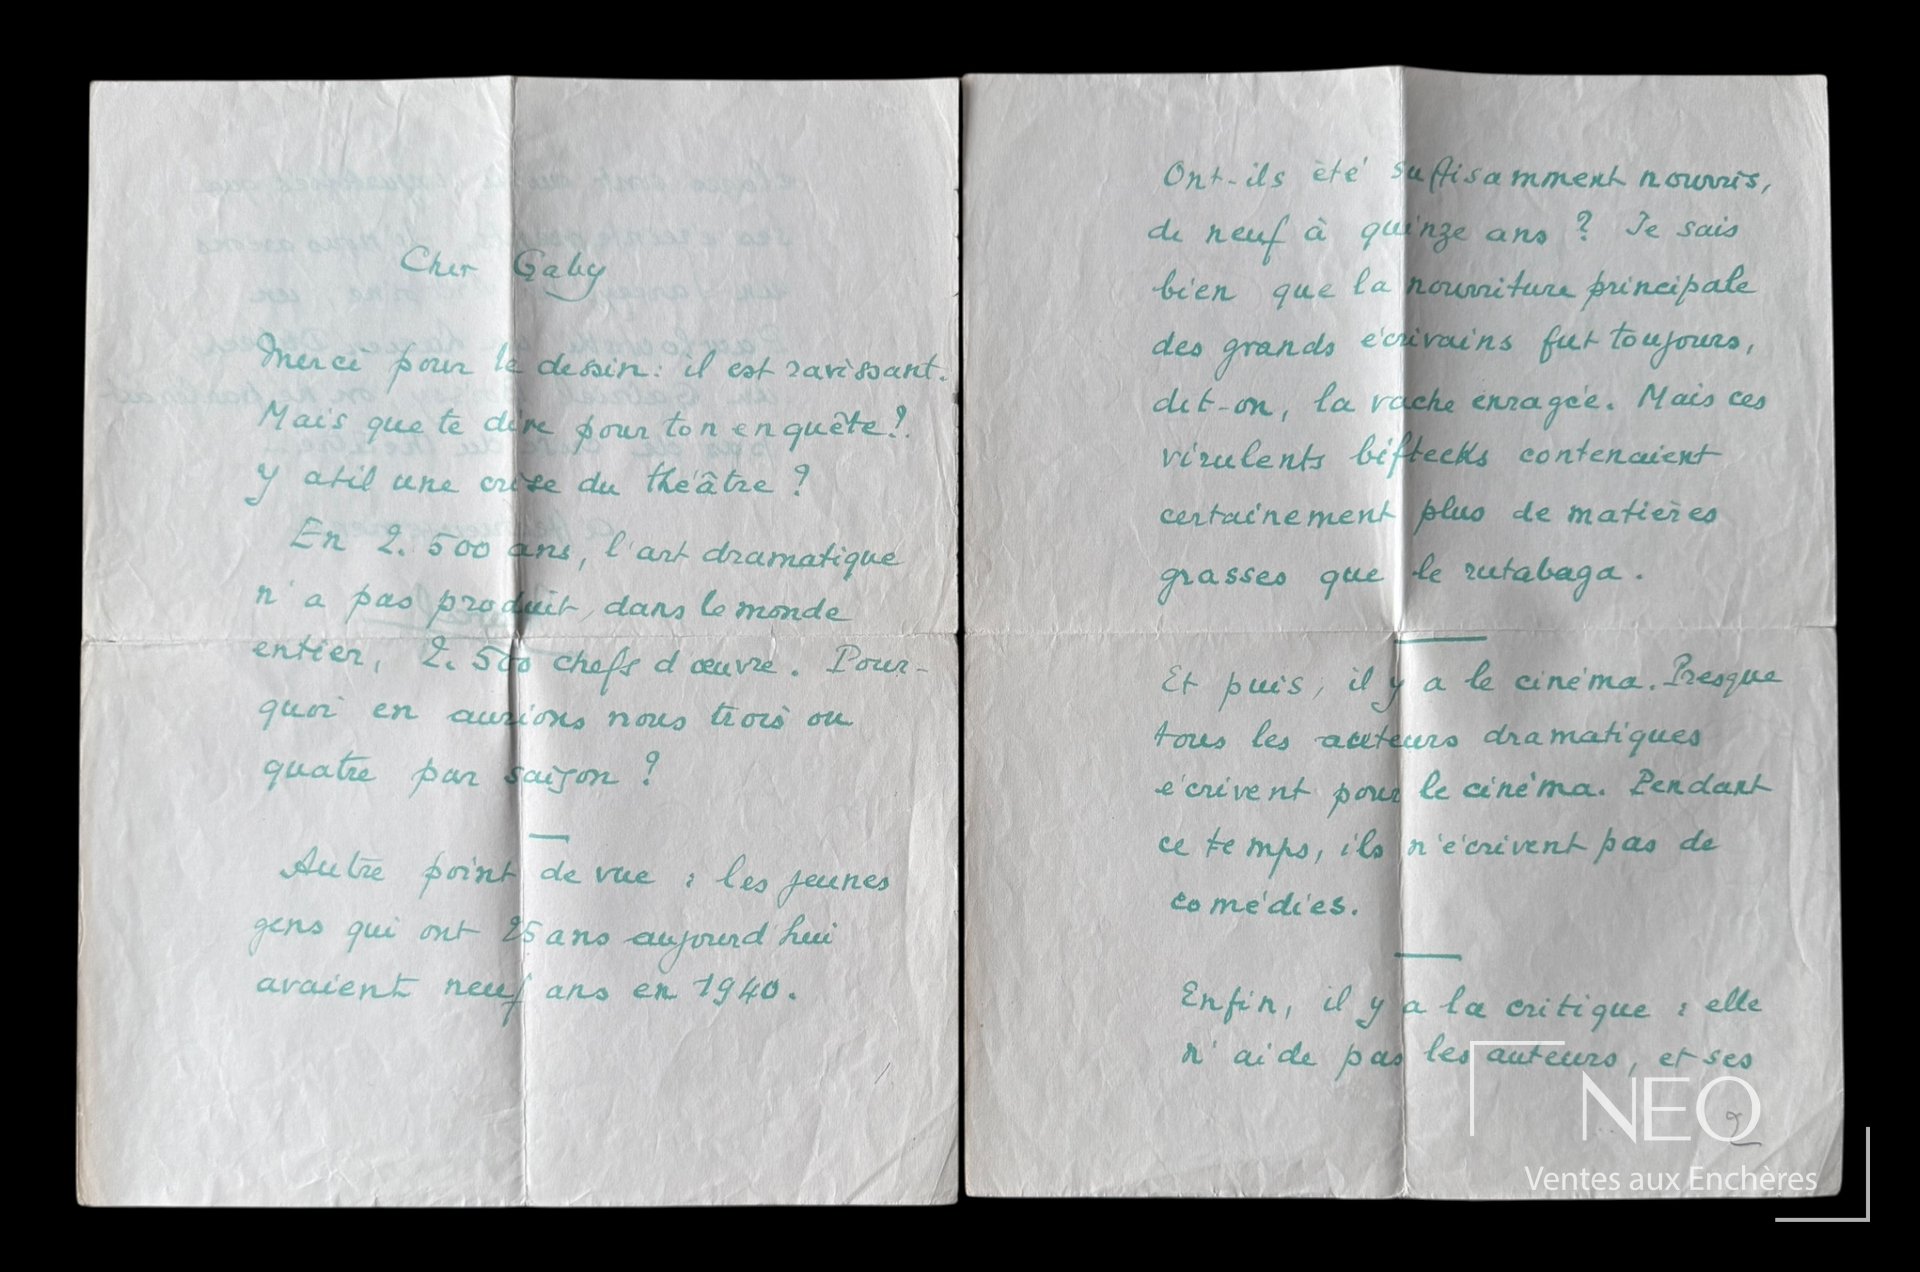 Cher Gaby
Merci pour le dessin : il est ravissant.
Mais que te dire pour ton enquête ?.
Y atil une crise du théâtre ?
En 2.500 ans, l'art dramatique
n'a pas produit, dans le monde
entier, 2.500 chefs d'œuvre. Pour-
quoi en aurions nous trois ou
quatre par saison ?
Autre point de vue : les jeunes
gens qui ont 25 ans aujourd'hui
avaient neuf ans en 1940.
Ont-ils été suffisamment nourris,
de neuf à quinze ans ? Je sais
bien que la nourriture principale
des grands écrivains fut toujours,
dit-on, la vache enragée. Mais ces
virulents biftecks contenaient
certainement plus de matières
grasses que le rutabaga.
Et puis, il y a le cinéma. Presque
tous les auteurs dramatiques
écrivent pour le cinéma. Pendant
ce temps, ils n'écrivent pas de
comédies.
Enfin, il y a la critique : elle
n'aide pas les auteurs, et ses
2
NEO
Ventes aux Enchères